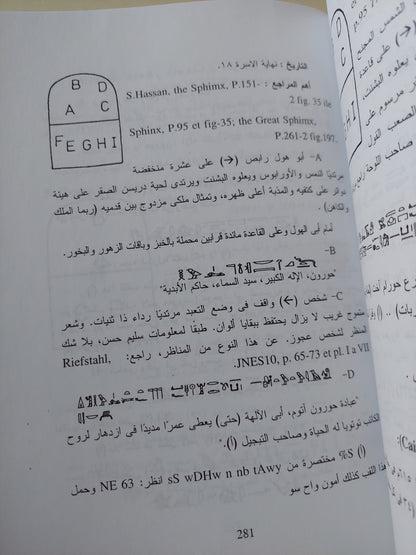 B D
A C
F E G H I
التاريخ : نهاية الاسرة ١٨.
أهم المراجع : S.Hassan, the Sphimx, P.151-
2 fig. 35 ile
Sphinx, P.95 et fig-35; the Great Sphimx,
P.261-2 fig.197.
A- أبو هول رابض (→) على عشرة منخفضة
مرتديًا النمس والأورايوس ويعلوه البشنت ويرتدى لحية دريس الصقر على هيئة
دوائر على كتفيه والمذبة أعلى ظهره، وتمثال ملكى مزدوج بين قدميه (ربما الملك
والكاهن) .
أمام أبى الهول وعلى القاعدة مائدة قرابين محملة بالخبز وباقات الزهور والبخور.
B-
"حورون، الإله الكبير، سيد السماء، حاكم الأبدية"
C- شخص (←) واقف فى وضع التعبد مرتديًا رداء ذا ثنيات. وشعر
متموج غريب لا يزال يحتفظ ببقايا ألوان. طبقًا لمعلومات سليم حسن، بلا شك
المنظر لشخص عجوز. عن هذا النوع من المناظر، راجع: Riefstahl,
JNES10, p. 65-73 et pl. I a VII.
D-
"عبادة حورون أتوم، أبى الآلهة (حتى) يعطى عمرًا مديدًا فى ازدهار لروح
الكاتب توتويا له الحياة وصاحب التبجيل (أ).
(أ) S% مختصرة من sS wDHw n nb tAwy انظر: NE 63 وحمل
هذا اللقب كذلك أمون واح سو
281
p.95
الشمس المجنح
على قاعدة
يعلوه البشنت،
مرسوم على
الصعب القول
صاحب اللوحة